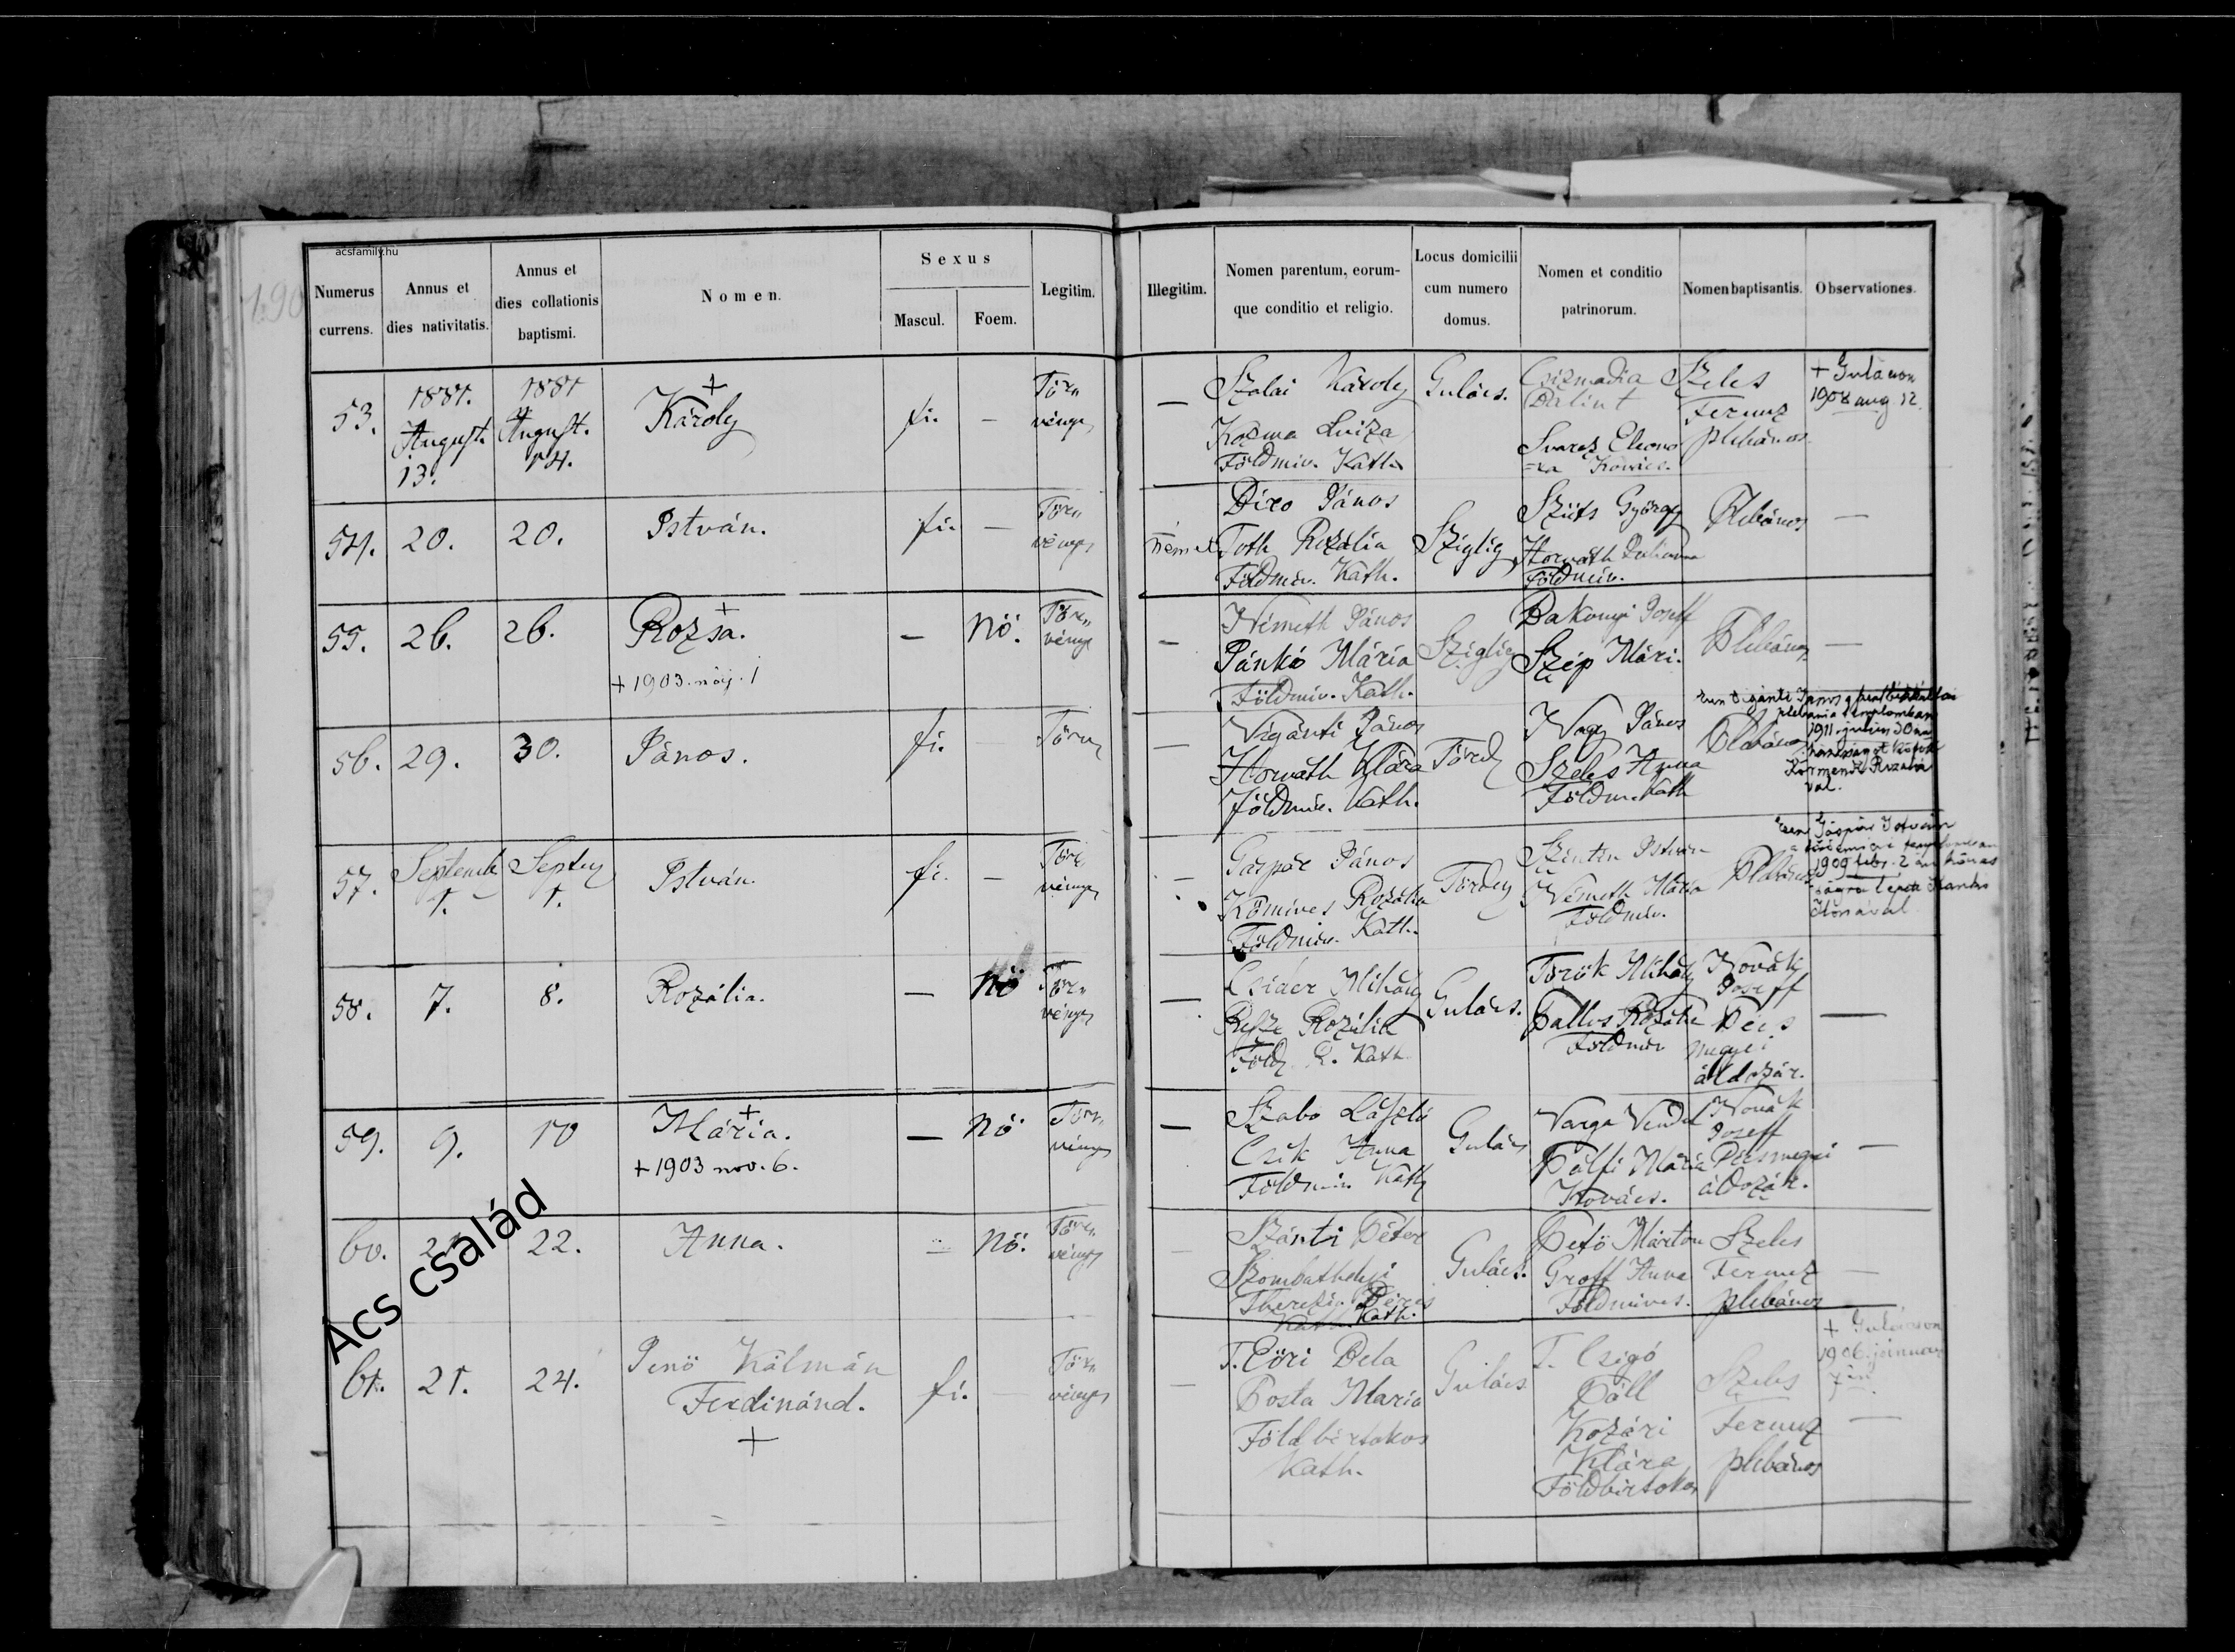 acsfamily.hu
Numerus
currens.
Annus et
dies nativitatis.
Annus et
dies collationis
baptismi.
Nomen.
Sexus
Mascul.
Foem.
Legitim.
Illegitim.
Nomen parentum, eorum-
que conditio et religio.
Locus domicilii
cum numero
domus.
Nomen et conditio
patrinorum.
Nomen baptisantis.
Observationes.
53.
1881.
August.
13.
1881
August.
14.
+
Károly
fi.
—
Tör„
vényes
—
Szalai Károly
Kozma Luiza
Földmiv. Kath.
Gulács.
Csizmadia
Bálint
Kovács.
Szeles
Ferencz
plebános
+ Gulácson
1908 aug. 12.
54.
20.
20.
István.
fi.
—
Tör„
vényes
Biro János
Toth Rozália
Földmiv. Kath.
Sziglig
Szüts György
Horváth Julianna
Földmiv.
Plebános
—
55.
26.
26.
+
Rozsa.
+ 1903. máj. 1
—
nö.
Tör„
vénye
—
Németh János
Pánkó Mária
Földmiv. Kath.
Sziglig
Bakonyi Joseff
Szép Mári.
Plebános
—
56.
29.
30.
János.
fi.
—
Törv
—
Vigánti János
Horváth Klára
Földmiv. Kath.
Tördej
Nagy János
Szeles Anna
Földm. Kath
Plebános
plebánia templomban
1911. junius 30 án
házasságot kötött
Körmendi Rozáliá
val.
57.
Septemb
1.
Septem
1.
István.
fi.
—
Tör„
vényes
—
Gáspár János
Kőmives Rozália
Földmiv. Kath.
Tördej
István
Németh Mária
Földmiv.
Plebános
ezen Gáspár István
1909 febr. 2 án házas
ságra lépett
Ilonával
58.
7.
8.
Rozália.
—
nö
Tör„
vényes
—
Csider Mihály
Rozália
Földm. R. Kath.
Gulács.
Török Mihály
Pallos Rozália
Földmiv
Novák
Joseff
Pécs
megyei
áldozár.
—
59.
9.
10
+
Mária.
+ 1903 nov. 6.
—
nö
Törv„
vényes
—
Szabo László
Csik Anna
Földmiv. Kath
Gulács
Varga Vendel
Pálfi Mária
Kovács.
Novák
Joseff
Pécsmegyei
áldozár.
—
60.
22.
Anna.
—
nö.
Tör„
vényes
—
Szánti Péter
Szombathelyi
Therezi. Béres
Kath. Kath.
Gulács.
Pető Márton
Groff Anna
Földmives.
Szeles
Ferencz
plebános
—
Ács család
61.
21.
24.
Jenö Kálmán
Ferdinánd.
+
fi.
—
Tör„
vényes
—
T. Eöri Bela
Posta Maria
Földbirtokos
Kath.
Gulács
T. Csigó
Páll
Kozári
Klára
Földbirtokos
Szeles
Ferencz
plebános
+ Gulácson
1906. januar
7 én.
—